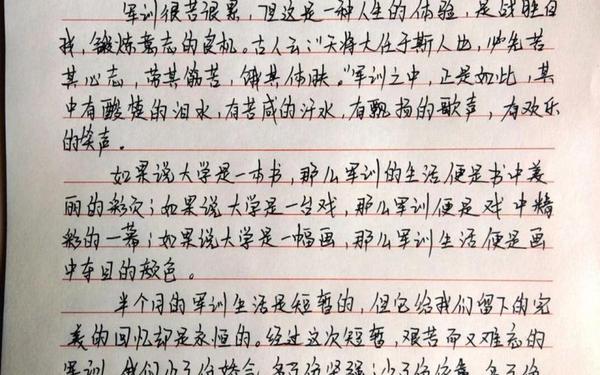 军训很苦很累，但这是一种人生的体验，是战胜自
我，锻炼意志的良机。古人云："天将大任于斯人也，必先苦
其心志，劳其筋苦，饿其体肤。"军训之中，正是如此，其
中有酸楚的泪水，有苦咸的汗水，有飘扬的歌声，有欢乐
的笑声。
如果说大学是一本书，那么军训的生活便是书中美
丽的彩穴；如果说大学是一台戏，那么军训便是戏中精
彩的一幕；如果说大学是一幅画，那么军训生活便是画
中夺目的颜色。
半个月的军训生活是短暂的，但它给我们留下的完
美的回忆却是永恒的。经过这次短暂，艰苦而又难忘的
军训，我们少了份娇气，多了份坚强；少了份依靠，多了份